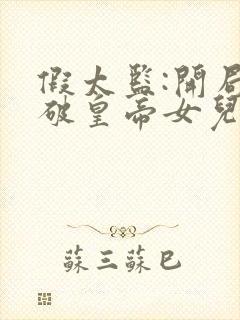 假太監:開局
破皇帝女兒
蘇三蘇巳